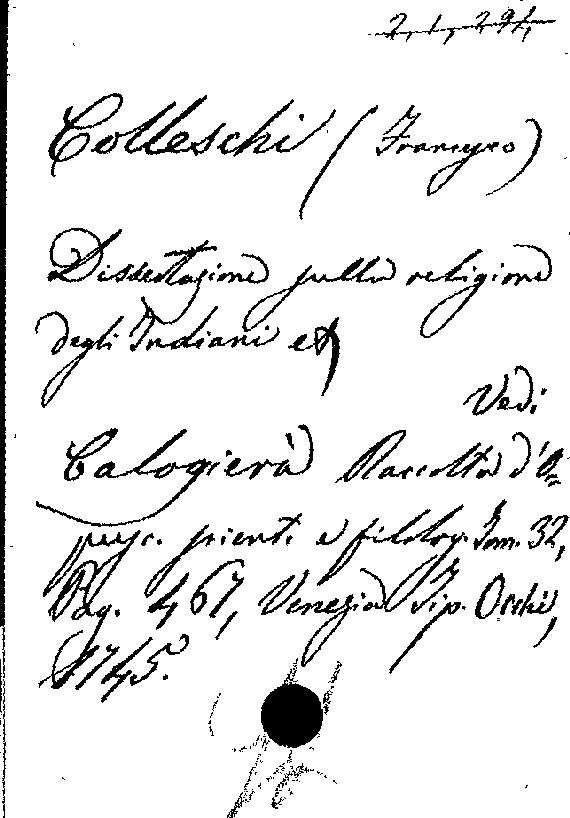 2, 1, 291,
Colleschi (Francesco)
Dissertazione sulla religione
degli Indiani etc
Vedi
Calogierà Raccolta d'O=
pusc. scient. e filolog. Tom. 32,
Pag. 467, Venezia Tip. Occhi,
1745.